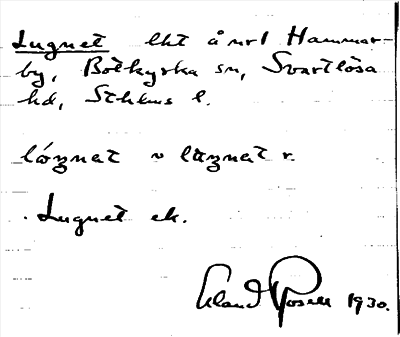 Lugnet lht å nr 1 Hammar-
by, Botkyrka sn, Svartlösa
hd, Sthlms l.
lóʒnat v lʉʒnat r.
. Lugnet ek.
Erland Rosell 1930.